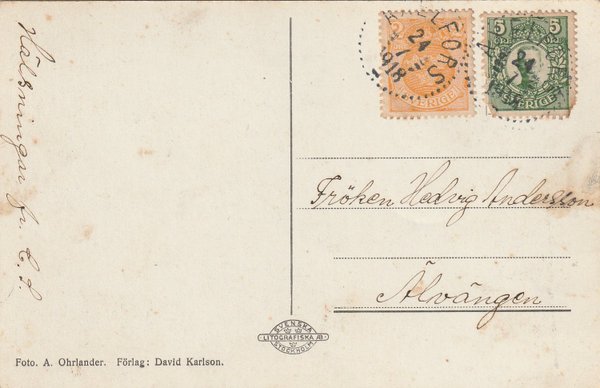 Hälsningar fr. E. S.
5 5
SVERIGE
SVERIGE
24
1918
Fröken Hedvig Andersson
Älvängen
SVENSKA
LITOGRAFISKA AB
STOCKHOLM
Foto. A. Ohrlander. Förlag; David Karlson.